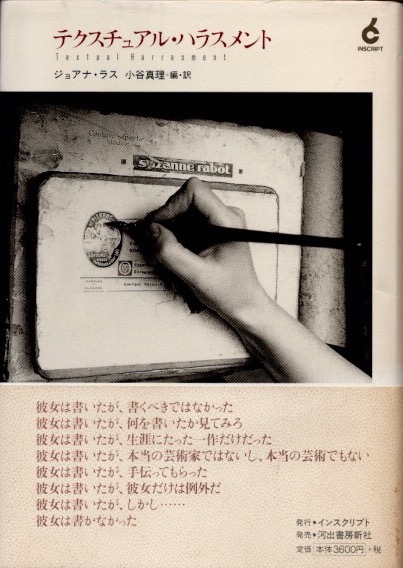 テクスチュアル・ハラスメント
Textual Harrasment
ジョアナ・ラス 小谷真理 編・訳
INSCRIPT
suzanne rabot
彼女は書いたが、書くべきではなかった
彼女は書いたが、何を書いたか見てみろ
彼女は書いたが、生涯にたった一作だけだった
彼女は書いたが、本当の芸術家ではないし、本当の芸術でもない
彼女は書いたが、手伝ってもらった
彼女は書いたが、彼女だけは例外だ
彼女は書いたが、しかし……
彼女は書かなかった
発行★インスクリプト
発売★河出書房新社
定価 本体3600円 +税